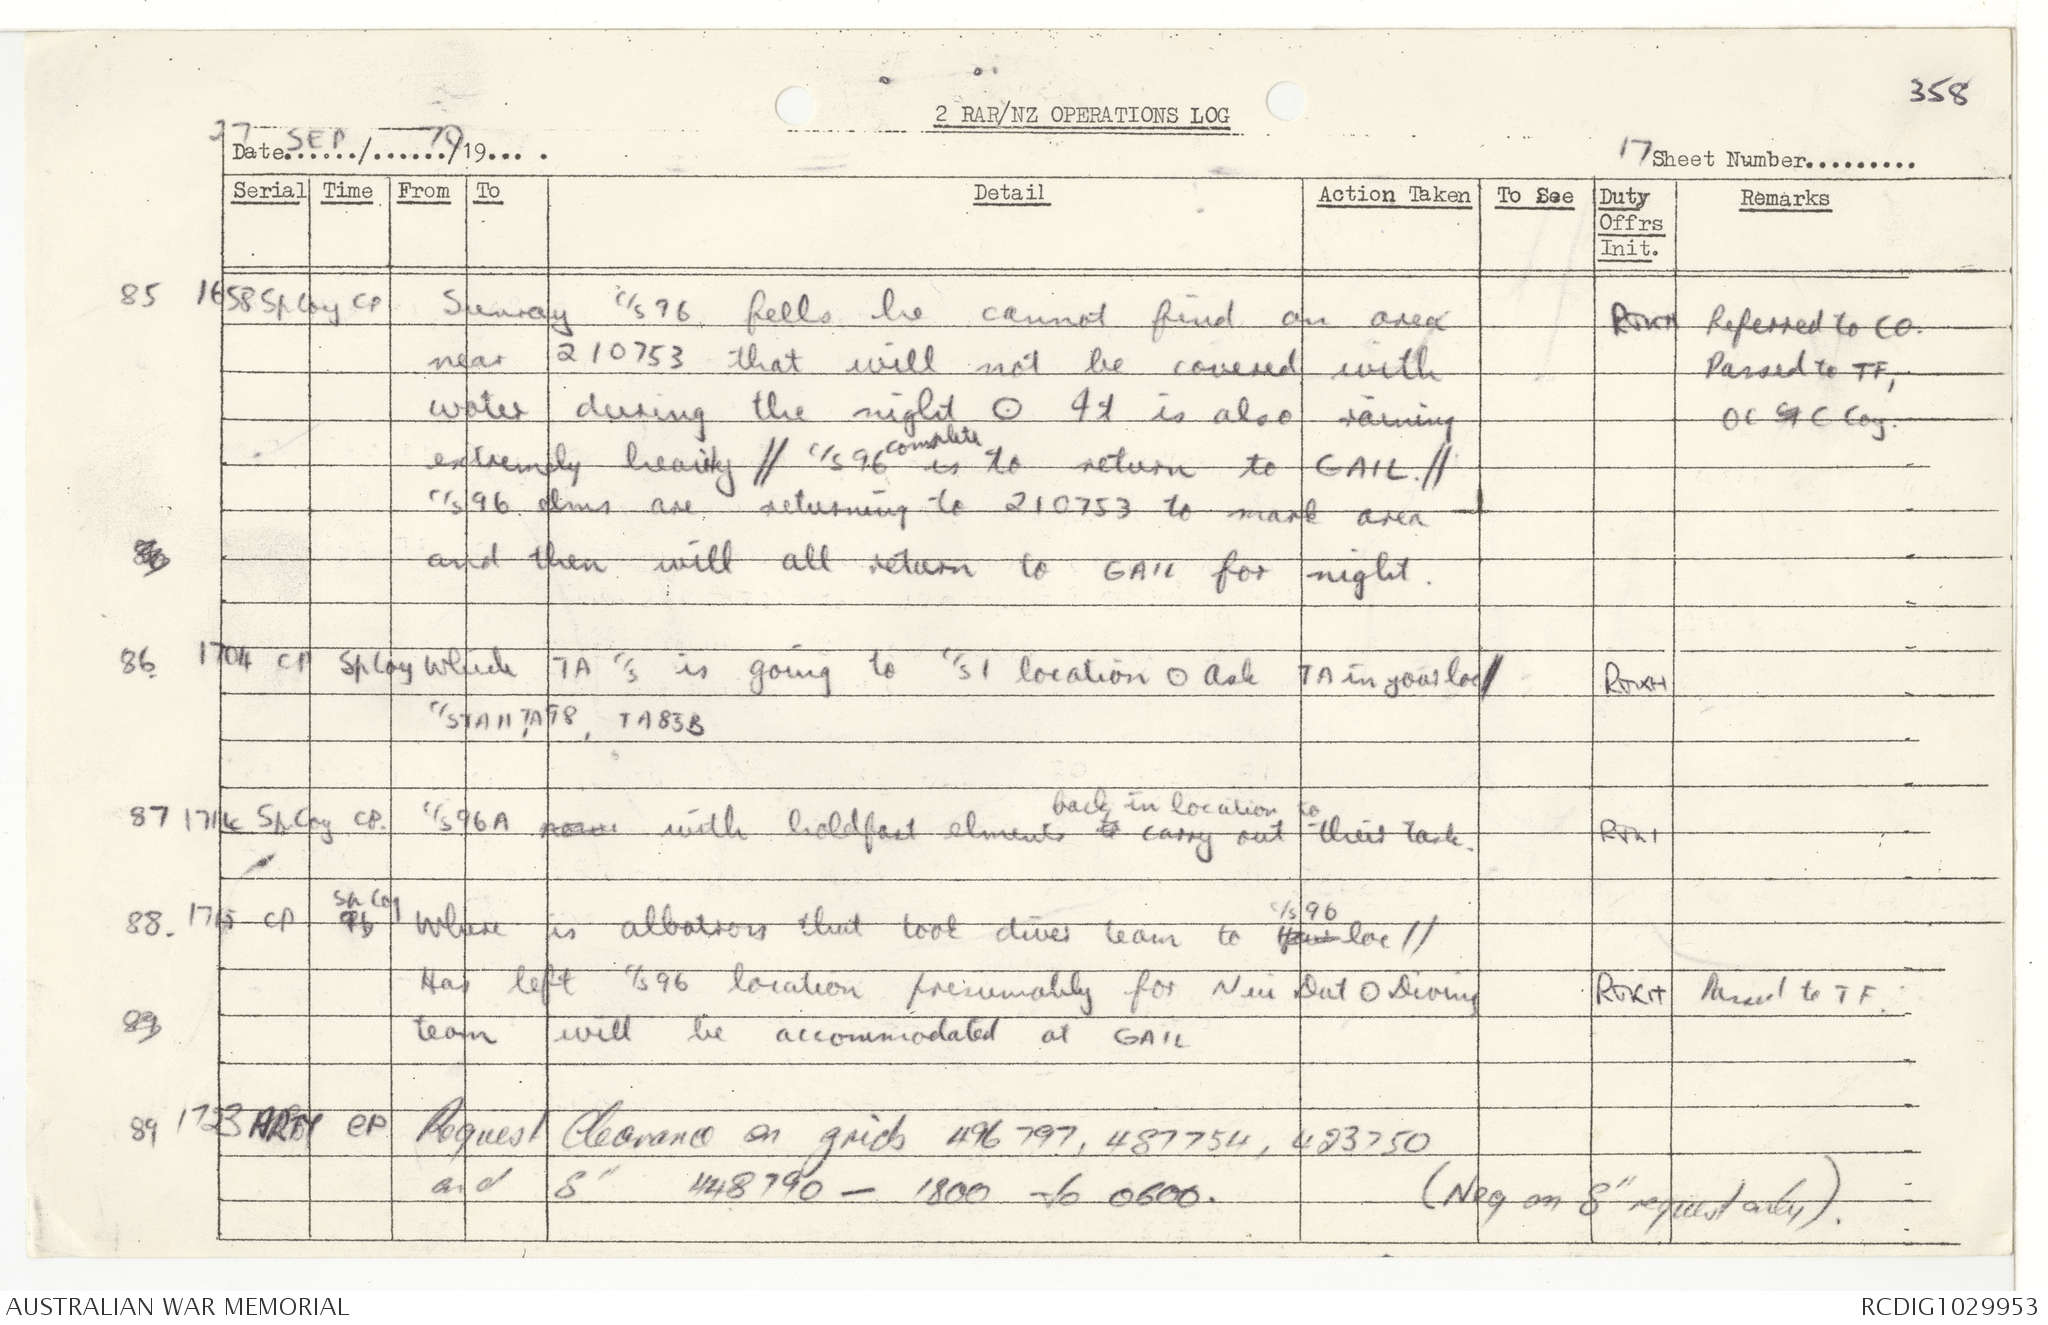 358
2 RAR/NZ OPERATIONS LOG
27 SEP 70
Date....../....../19... .
17 Sheet Number.........
Serial Time From To Detail Action Taken To See Duty Offrs Init. Remarks
85 1658 Sp Coy CP Sunray c/s 96 fells he cannot find an area RTKH Referred to CO.
near 210753 that will not be covered with Passed to TF,
water during the night O It is also raining OC C Coy.
extremly heavily // c/s 96 complete is to return to GAIL. //
c/s 96 elms are returning to 210753 to mark area
and then will all return to GAIL for night.
86. 1704 CP Sp Coy Which TA c/s is going to c/s 1 location O Ask TA in your loc // RTKH
c/s TA11, TA98, TA83B
87 Sp Coy CP. c/s 96A with holdfast elments back in location to carry out their task.
88. 1715 CP Sp Coy Where is albatross that took diver team to c/s 96 loc //
Has left c/s 96 location presumably for Nui Dat O Diving RTKH Passed to TF.
team will be accommodated at GAIL
89 1723 ARTY CP Request Clearance on grids 496797, 487754, 423750
and 8" 448790 — 1800 to 0600. (Neg on 8" request only).
AUSTRALIAN WAR MEMORIAL
RCDIG1029953